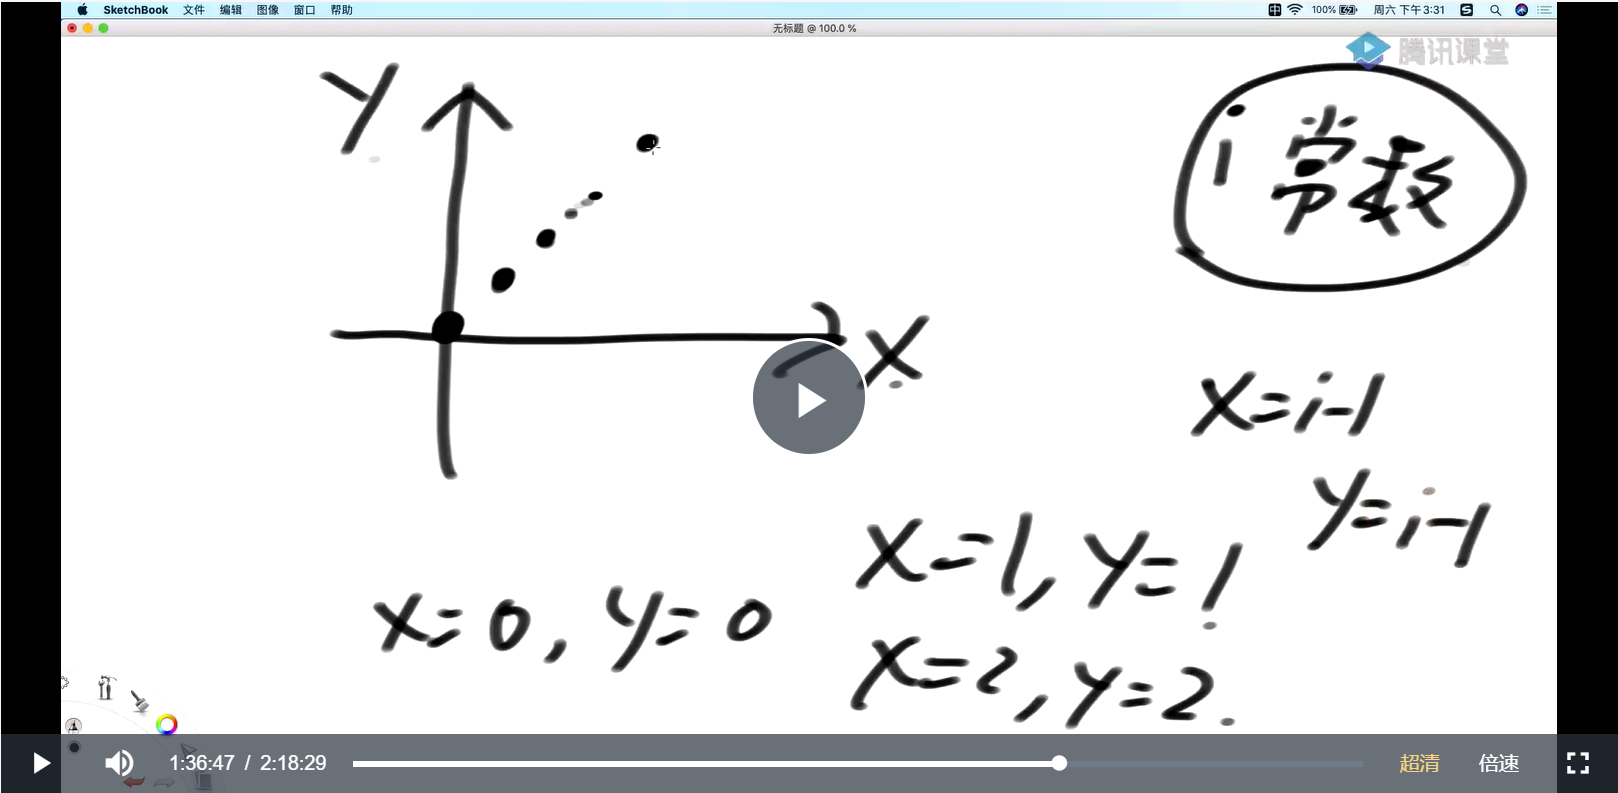 SketchBook 文件 编辑 图像 窗口 帮助
100% 周六 下午3:31
无标题 @ 100.0 %
腾讯课堂
y
i 常数
x
x=i-1
y=i-1
x=1, y=1
x=0, y=0
x=2, y=2.
1:36:47 / 2:18:29
超清 倍速